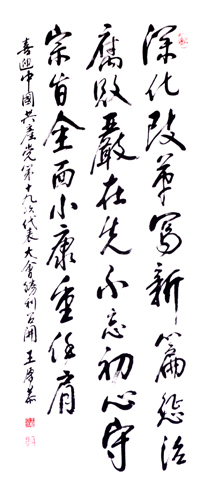 深化改革寫新篇惩治
腐败嚴在先不忘初心守
宗旨全面小康重任肩
喜迎中國共産党第十九次代表大會勝利召開 王